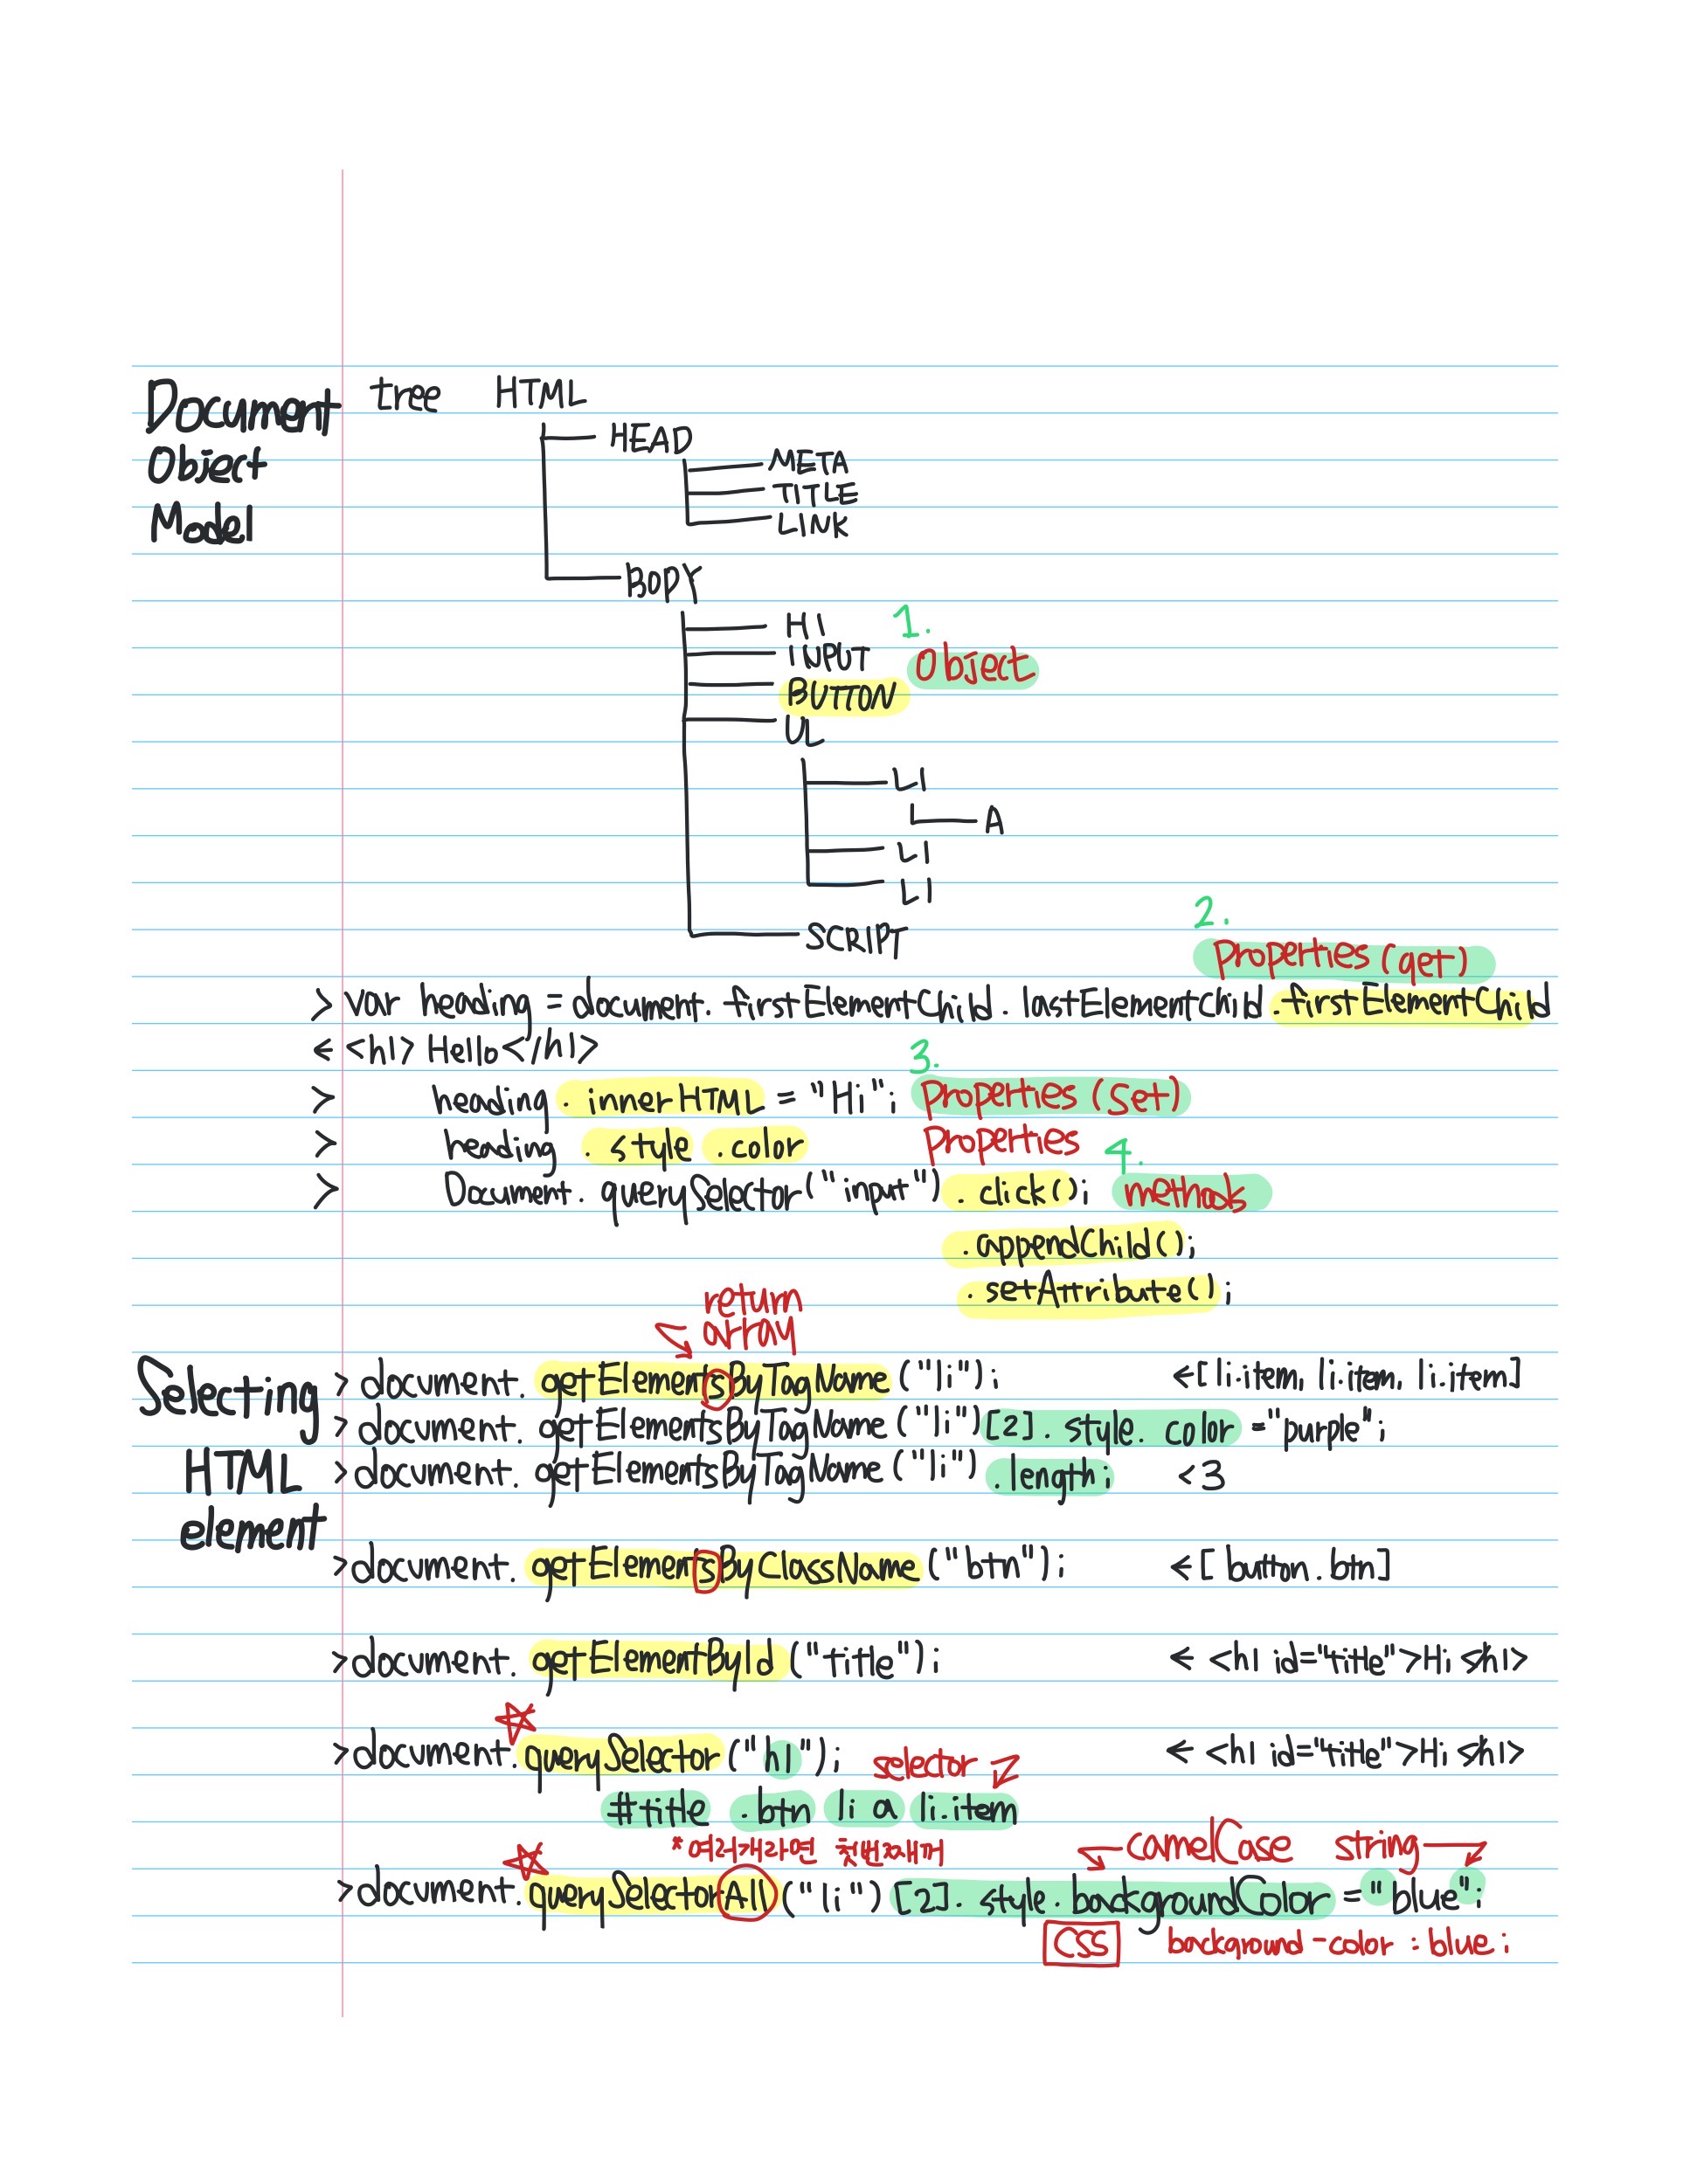 Document tree HTML
Object
Model
HEAD
META
TITLE
LINK
BODY
H1 1.
INPUT Object
BUTTON
UL
LI
A
LI
LI
SCRIPT
2.
Properties (get)
> var heading = document.firstElementChild.lastElementChild.firstElementChild
< <h1> Hello </h1>
3.
> heading.innerHTML = "Hi"; Properties (Set)
> heading.style.color Properties
4.
> Document.querySelector("input").click(); methods
.appendChild();
.setAttribute();
return
array
Selecting
HTML
element
> document.getElementsByTagName("li"); <[li.item, li.item, li.item]
> document.getElementsByTagName("li")[2].style.color = "purple";
> document.getElementsByTagName("li").length; <3
> document.getElementsByClassName("btn"); <[button.btn]
> document.getElementById("title"); < <h1 id="title">Hi</h1>
> document.querySelector("h1"); selector < <h1 id="title">Hi</h1>
#title .btn li a li.item
*여러개라면 첫번째꺼 camelCase string
> document.querySelectorAll("li")[2].style.backgroundColor = "blue";
CSS background-color : blue;